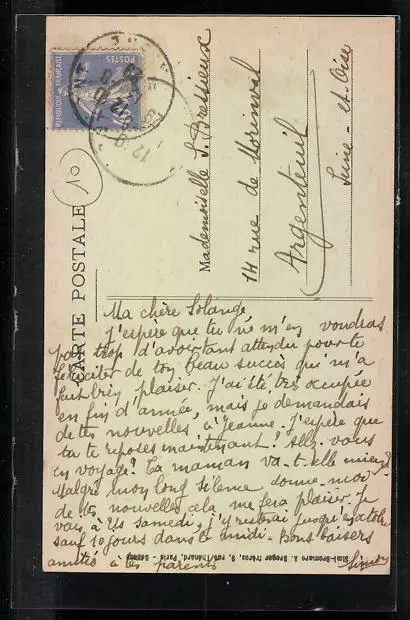 CARTE POSTALE
10
REPUBLIQUE FRANÇAISE
POSTES
Mademoiselle S. Bressieux
14 rue de Morinval
Argenteuil
Seine-et-Oise
Ma chère Solange
J'espère que tu ne m'en voudras
pas trop d'avoir tant attendu pour te
féliciter de ton beau succès qui m'a
fait bien plaisir. J'ai été très occupée
en fin d'année, mais je demandais
de tes nouvelles à Jeanne. J'espère que
tu te reposes maintenant? Allez-vous
en voyage? Ta maman va-t-elle mieux?
Malgré mon long silence donne-moi
de tes nouvelles cela me fera plaisir. Je
vais à samedi, j'y resterai jusqu'en octobre
sauf 10 jours dans le midi. Bons baisers
amitié à tes parents
Simi-Bromure A. Breger frères, 9, rue Thénard, Paris